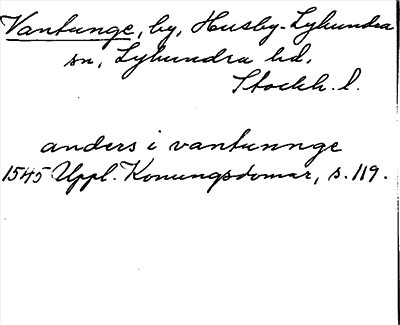 Vantunge, by, Husby-Lyhundra
sn, Lyhundra hd,
Stockh. l.
anders i vantunnge
1545 Uppl. Konungsdomar, s. 119.